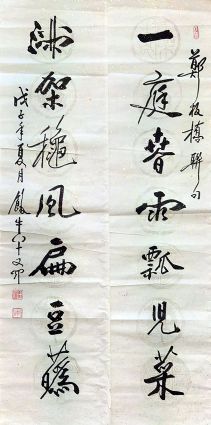 鄭板橋聯句
一庭春雨瓢兒菜
滿架穐風扁豆蘤
戊子年夏月飲牛八十又